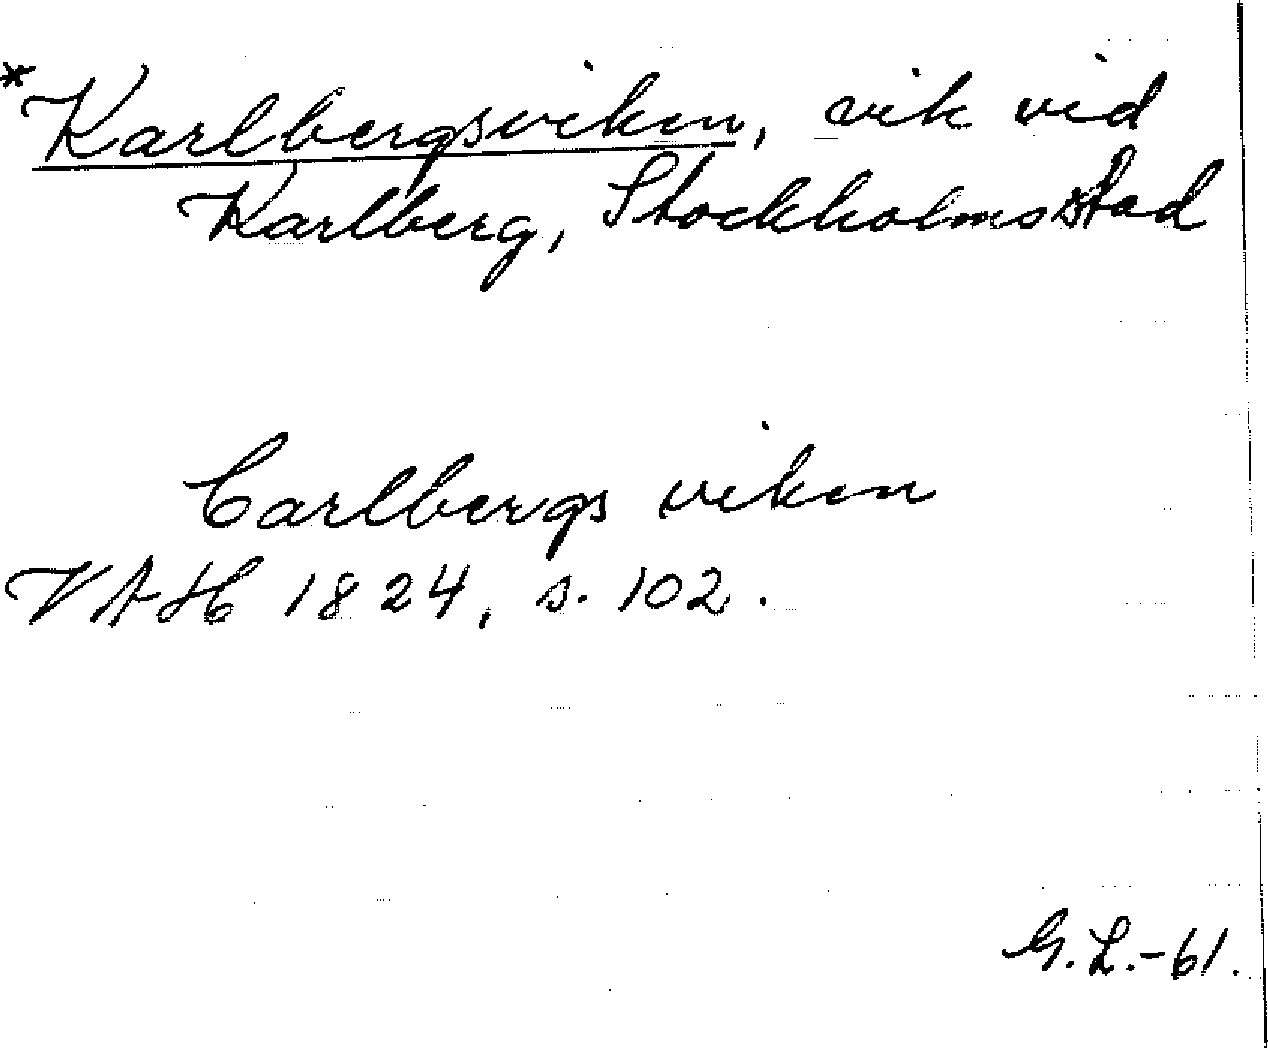 *Karlbergsviken, vik vid
Karlberg, Stockholms stad
Carlbergs viken
VAH 1824, s. 102.
G.L.-61.